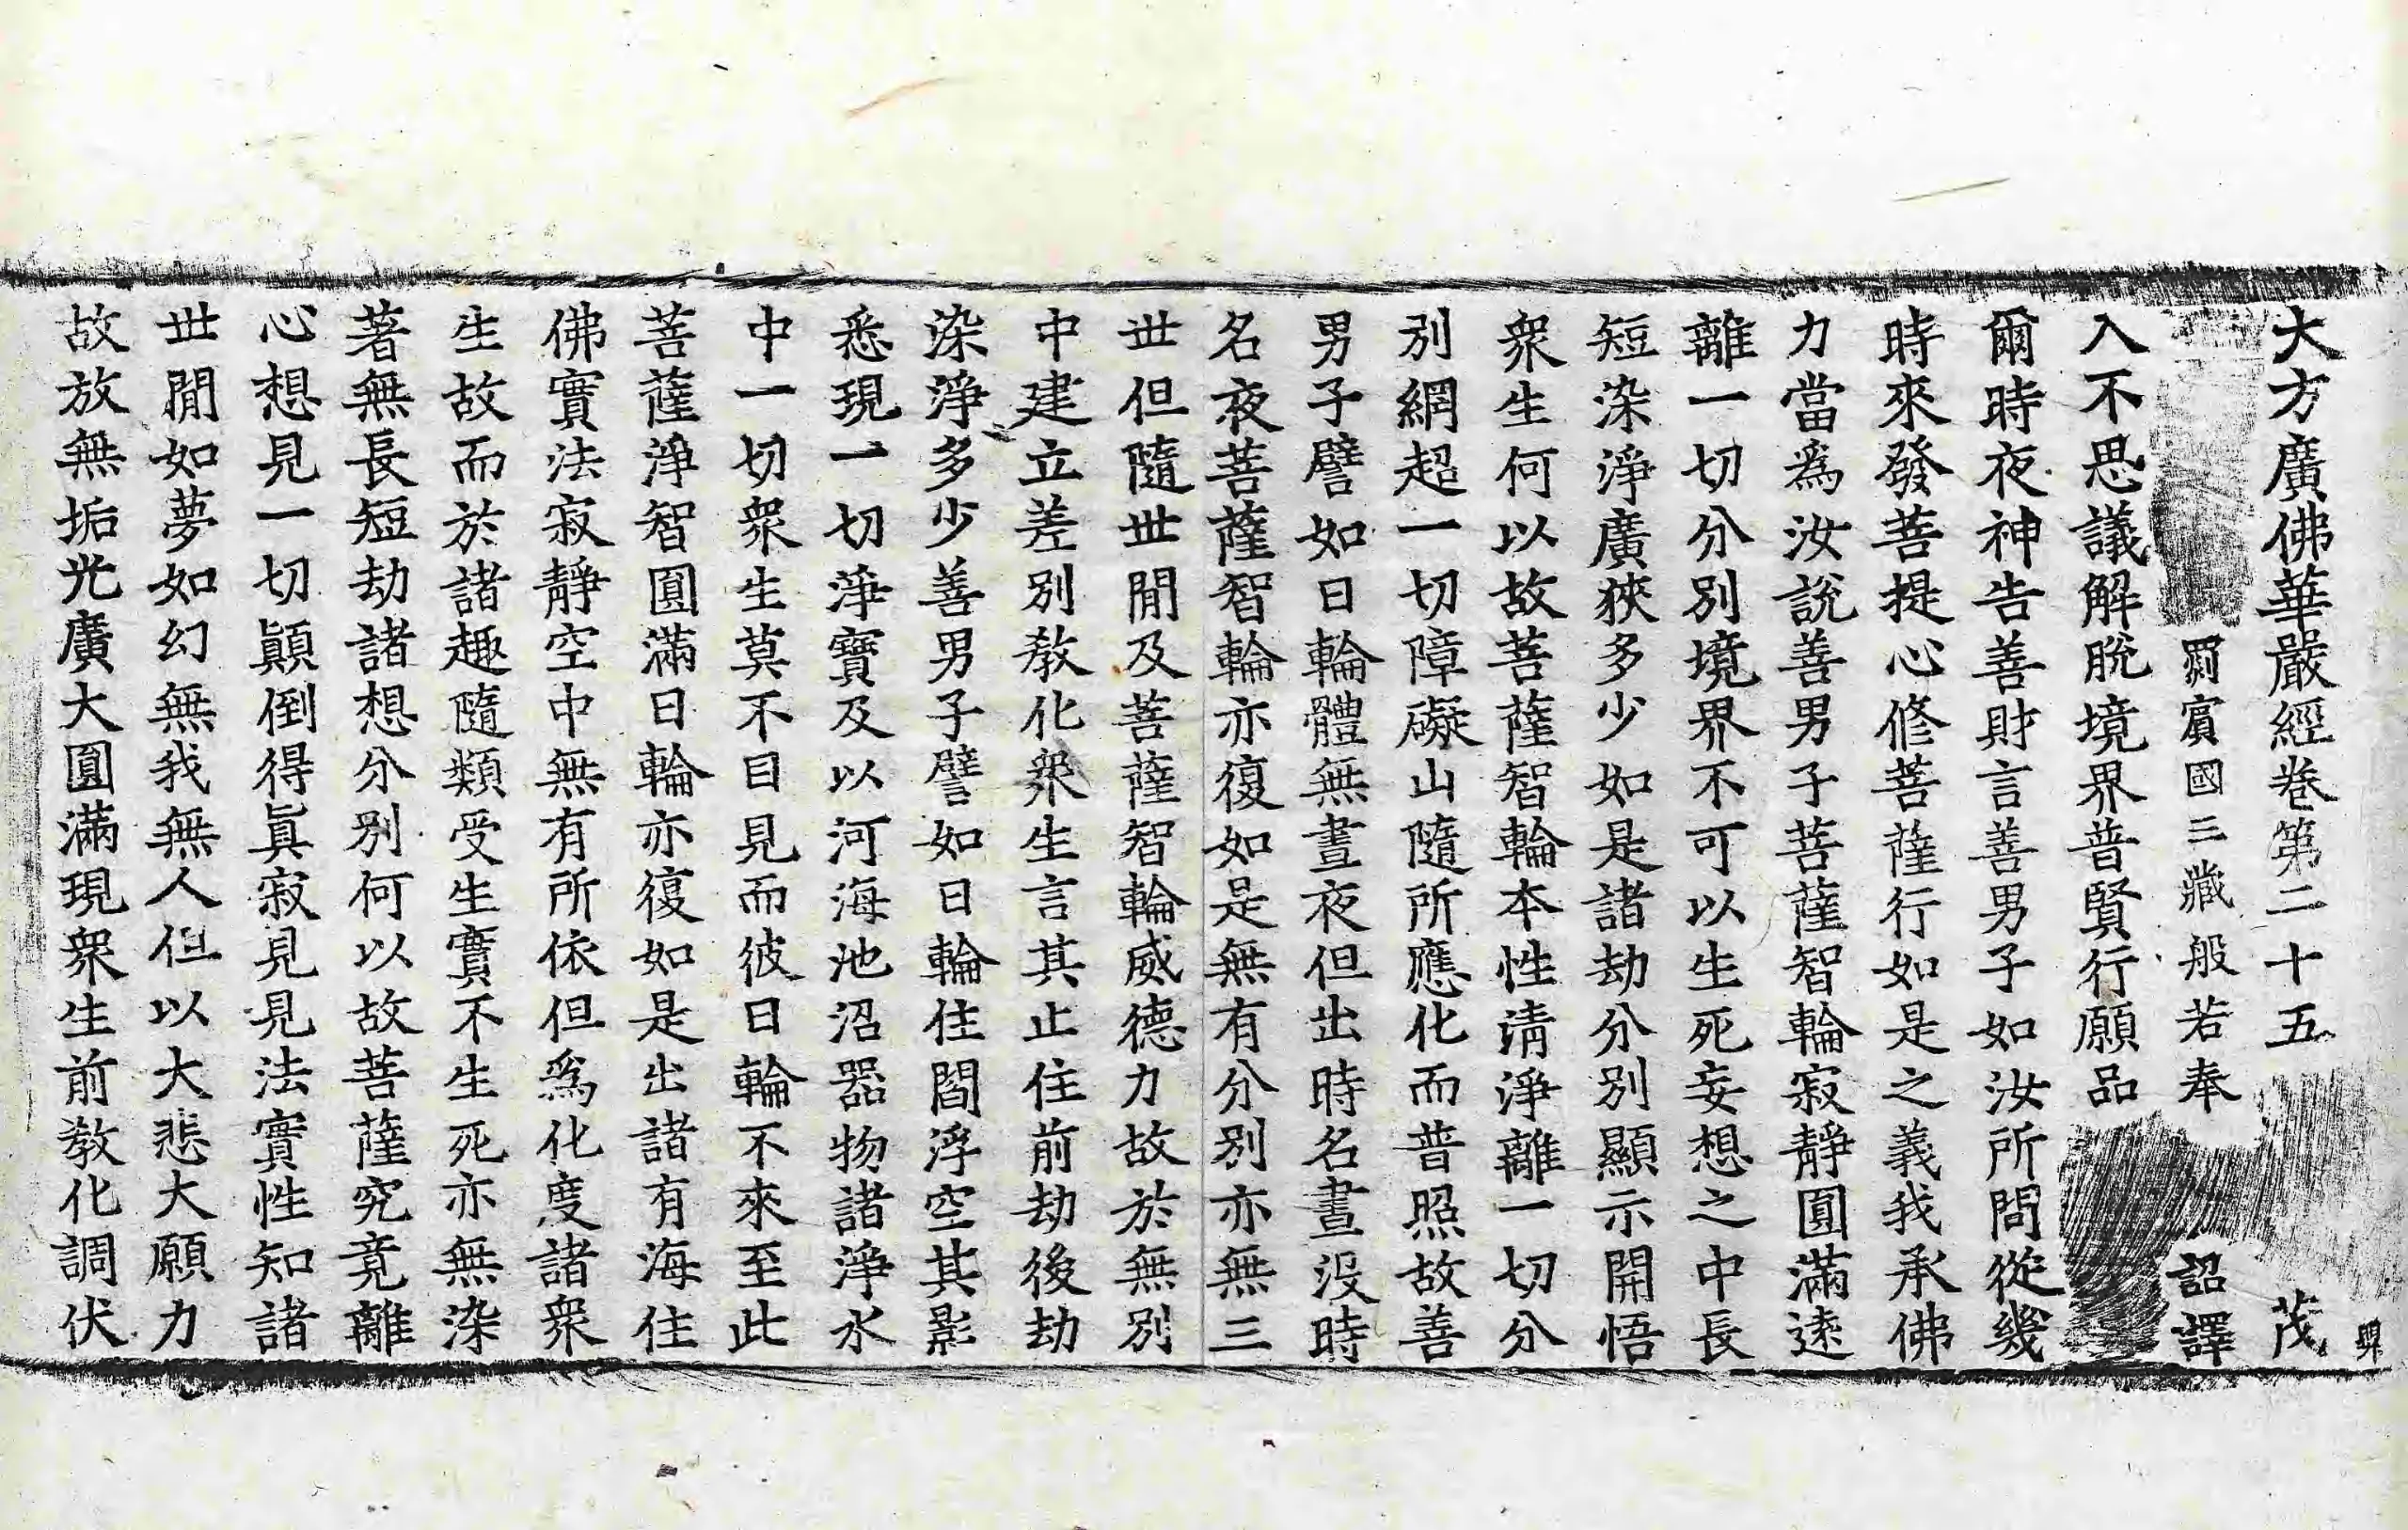 大方廣佛華嚴經卷第二十五 茂
罽賓國三藏般若奉 詔譯
入不思議解脫境界普賢行願品
爾時夜神告善財言善男子如汝所問從幾
時來發菩提心修菩薩行如是之義我承佛
力當爲汝說善男子菩薩智輪寂靜圓滿逺
離一切分別境界不可以生死妄想之中長
短染淨廣狹多少如是諸劫分別顯示開悟
衆生何以故菩薩智輪本性淸淨離一切分
別網超一切障礙山隨所應化而普照故善
男子譬如日輪體無晝夜但出時名晝沒時
名夜菩薩智輪亦復如是無有分別亦無三
世但隨世閒及菩薩智輪威德力故於無別
中建立差別教化衆生言其止住前劫後劫
染淨多少善男子譬如日輪住閻浮空其影
悉現一切淨寶及以河海池沼器物諸淨水
中一切衆生莫不目見而彼日輪不來至此
菩薩淨智圓滿日輪亦復如是出諸有海住
佛實法寂靜空中無有所依但爲化度諸衆
生故而於諸趣隨類受生實不生死亦無染
著無長短劫諸想分別何以故菩薩究竟離
心想見一切顚倒得眞寂見見法實性知諸
世閒如夢如幻無我無人但以大悲大願力
故放無垢光廣大圓滿現衆生前敎化調伏